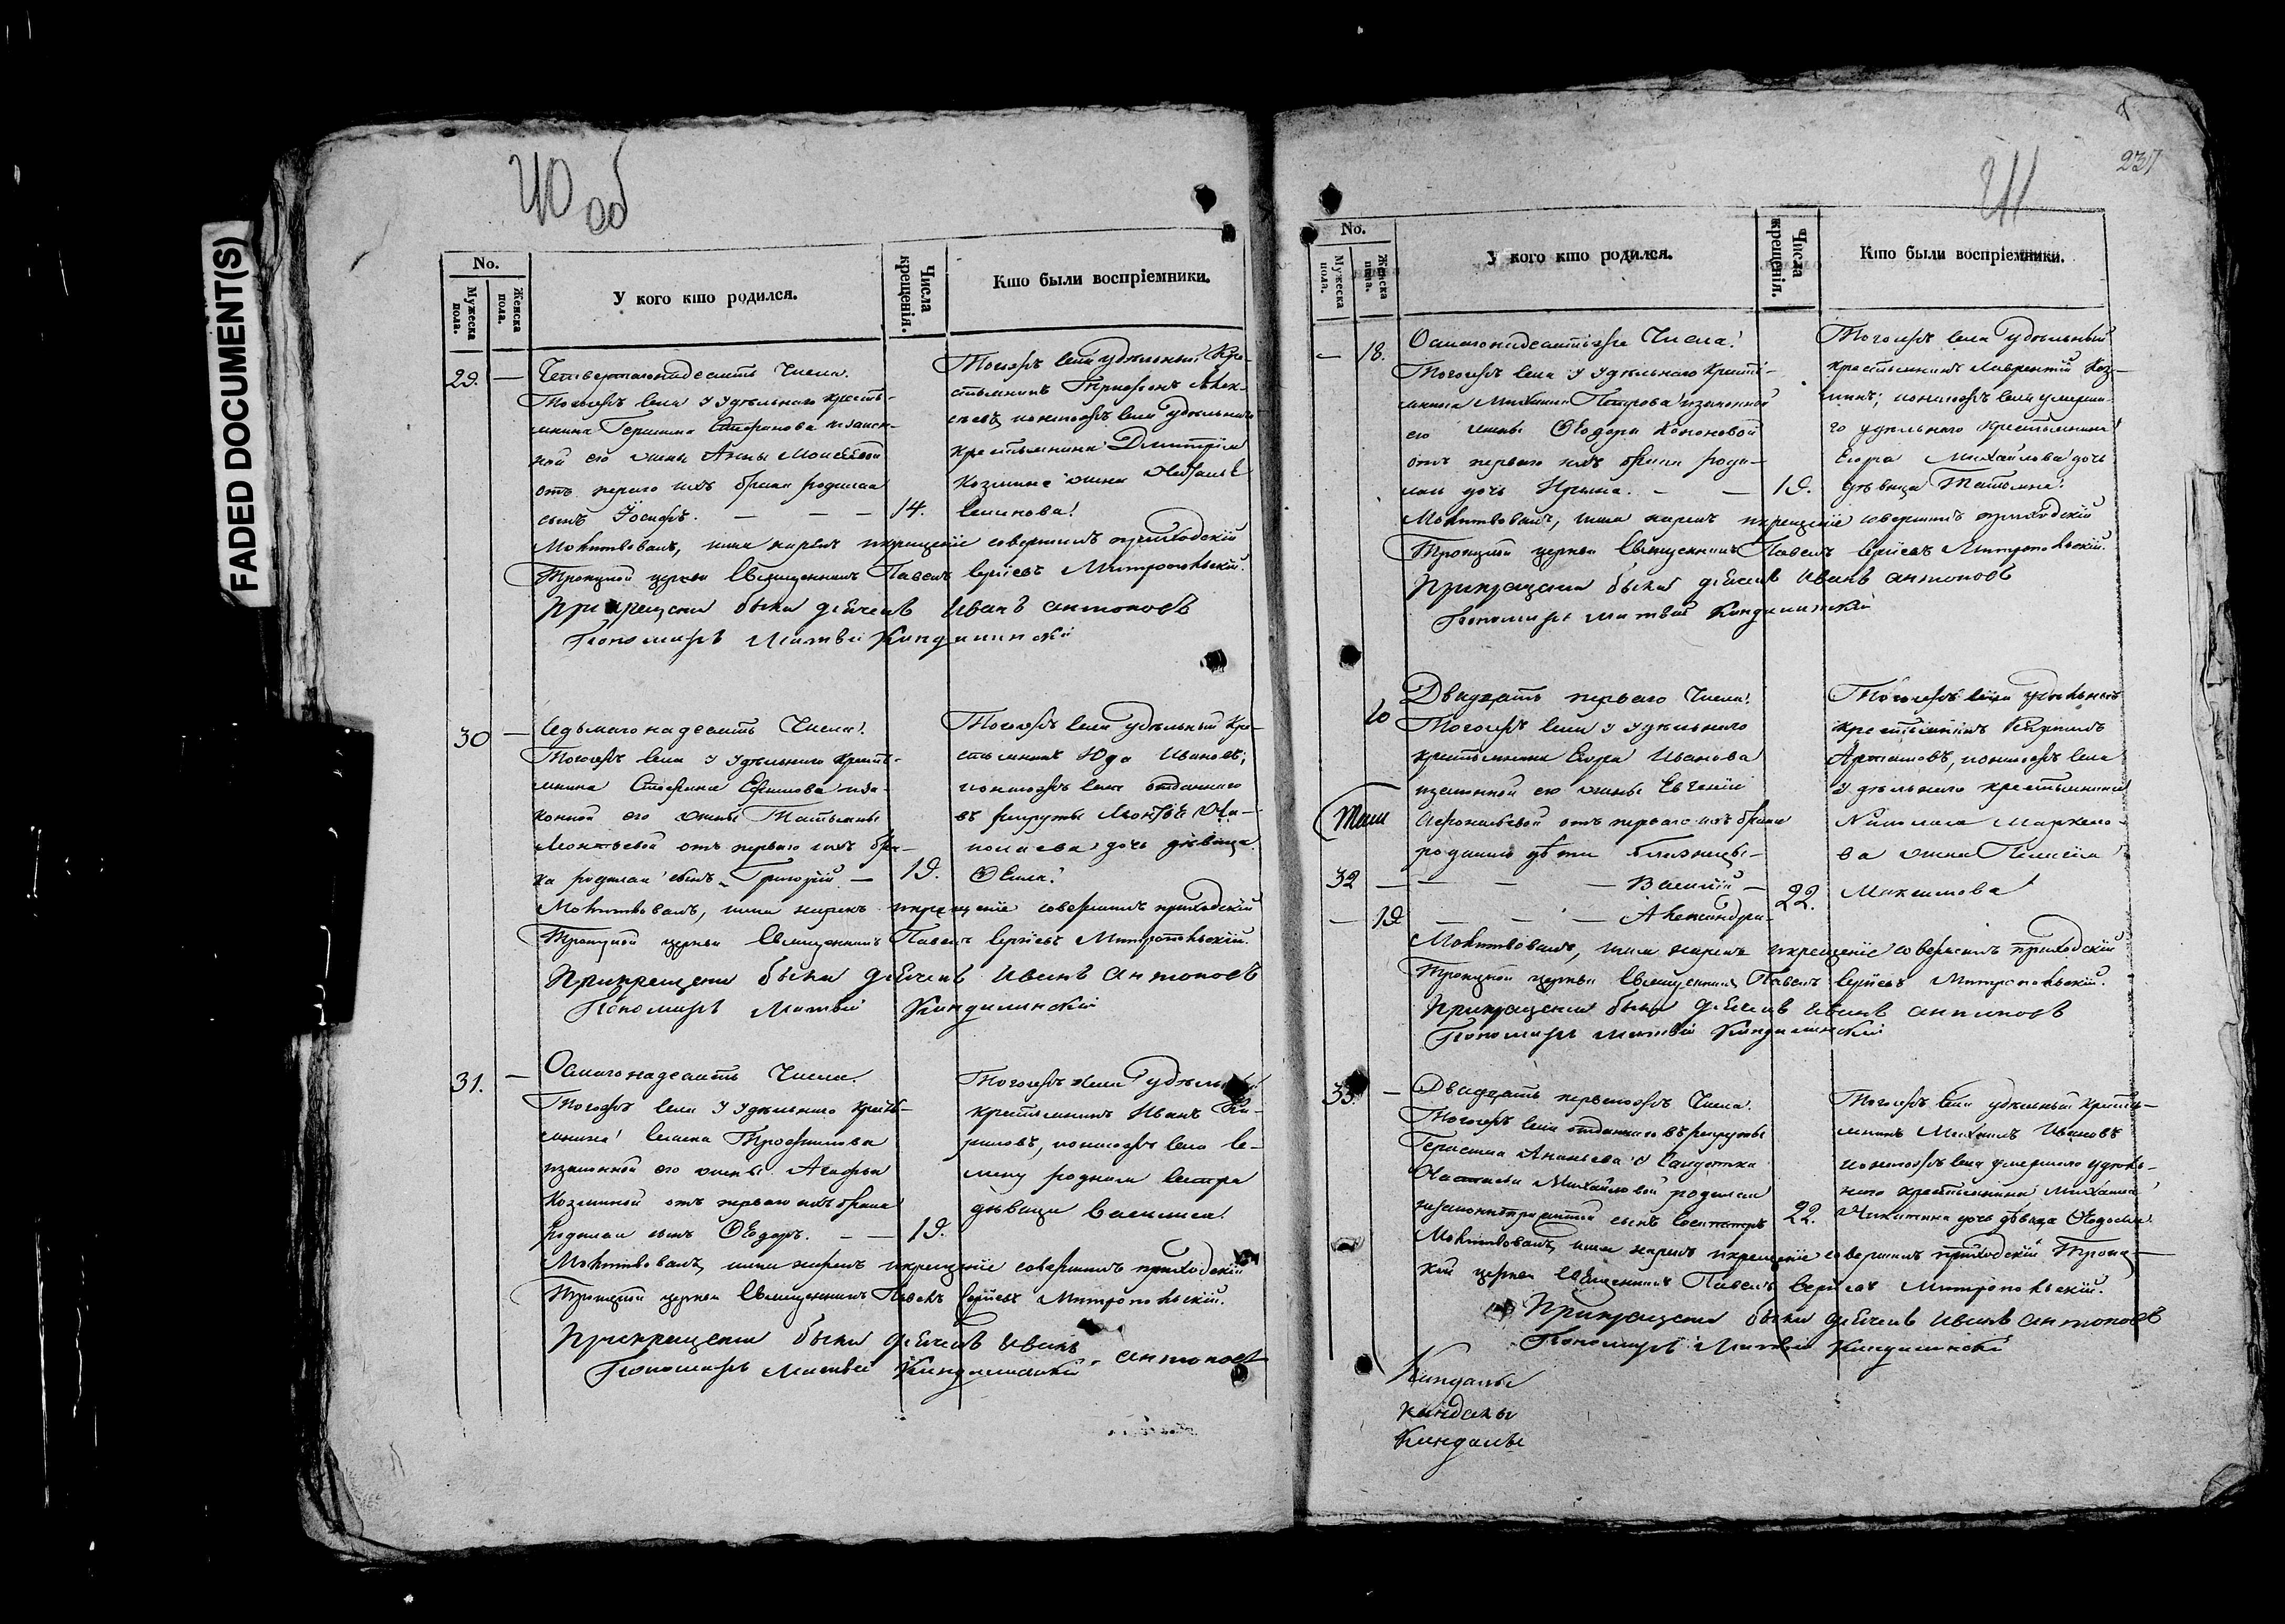 FADED DOCUMENT(S)
40 об
No.
Мужеска пола.
Женска пола.
У кого кто родился.
Числа крещенія.
Кто были воспріемники.
29. — Четвертагонадесять Числа.
Тогожъ села у удѣльнаго кресть-
янина Герасима Стефанова изакон-
ной его жены Анны Моисеевой
отъ перваго ихъ брака родился
сынъ Іосифъ. — — — 14.
Тогожъ села удѣльный кре-
стьянинъ Трифонъ Алек-
сѣевъ, ионагожъ села удѣльнаго
крестьянина Дмитрія
Козмина жена Наталья
Семенова.
Молитвовалъ, имя нарекъ икрещеніе совершилъ приходскій
Троицкой церкви Священникъ Павелъ Сергіевъ Митропольскій.
При крещеніи были дьячекъ Иванъ антоновъ
Пономарь Матвей Киндялинскій
30 — Седьмагонадесять Числа.
Тогожъ села у удѣльнаго кресть-
янина Стефана Ефимова иза-
конной его жены Татьяны
Леонтьевой отъ перваго ихъ бра-
ка родился сынъ Григорій — 19.
Тогожъ села удѣльный кре-
стьянинъ Юда Ивановъ;
отданнаго
въ рекруты Леонтья
дочь дѣвица
Молитвовалъ, имя нарекъ икрещеніе совершилъ приходскій
Троицкой церкви Священникъ Павелъ Сергіевъ Митропольскій.
Прикрещеніи были дьячекъ Иванъ антоновъ
Пономарь Матвей Киндялинскій
31. — Осмагонадесять Числа.
Тогожъ села у удѣльнаго кресть-
янина Семена Трофимова
изаконной его жены Агафьи
Козминой отъ перваго ихъ брака
родился сынъ Ѳеодоръ. — — 19.
Тогожъ села удѣльный
крестьянинъ Иванъ Ки-
риловъ, Се-
мену родная сестра
дѣвица Василиса.
Молитвовалъ, имя нарекъ икрещеніе совершилъ приходскій
Троицкой церкви Священникъ Павелъ Сергіевъ Митропольскій.
Прикрещеніи были дьячекъ Иванъ антоновъ
Пономарь Матвей Киндялинскій
41
237
No.
Мужеска пола.
Женска пола.
У кого кто родился.
Числа крещенія.
Кто были воспріемники.
— 18. Осмагонадесять Числа.
Тогожъ села у удѣльнаго кресть-
янина Михаила Петрова изаконной
его жены Ѳеодоры Кононовой
отъ перваго ихъ брака роди-
лась дочь Ирина. — — 19.
Тогожъ села удѣльный
крестьянинъ Лаврентій Коз-
минъ; умерша-
го удѣльнаго крестьянина
Егора Михайлова дочь
дѣвица Татьяна.
Молитвовалъ, имя нарекъ икрещеніе совершилъ приходскій
Троицкой церкви Священникъ Павелъ Сергіевъ Митропольскій.
Прикрещеніи были дьячекъ Иванъ антоновъ
Пономарь Матвей Киндялинскій
Двадцать перваго Числа.
Тогожъ села у удѣльнаго
крестьянина Егора Иванова
изаконной его жены Евгеніи
отъ перваго ихъ брака
родились дѣти близнецы —
32 — — — — Василій —
— 19 — — — Александра — 22.
Тогожъ села удѣльный
крестьянинъ
села
удѣльнаго крестьянина
Николая Маркело-
ва жена Пелагея
Максимова
Молитвовалъ, имя нарекъ икрещеніе совершилъ приходскій
Троицкой церкви Священникъ Павелъ Сергіевъ Митропольскій.
Прикрещеніи были дьячекъ Иванъ антоновъ
Пономарь Матвей Киндялинскій
33. — Двадцать первагожъ Числа.
Тогожъ села отданнаго въ рекруты
Герасима Ананьева у Солдатки
Настасьи Михайловой родился
незаконноприжитой сынъ 22.
Тогожъ села удѣльный кресть-
янинъ Михаилъ Ивановъ
умершаго удѣль-
наго крестьянина Михаила
Никитина дочь дѣвица Ѳедосья.
Молитвовалъ, имя нарекъ икрещеніе совершилъ приходскій Троиц-
кой церкви Священникъ Павелъ Сергіевъ Митропольскій.
Прикрещеніи были дьячекъ Иванъ антоновъ
Пономарь Матвей Киндялинскій
Киндалы
Киндалы
Киндалы